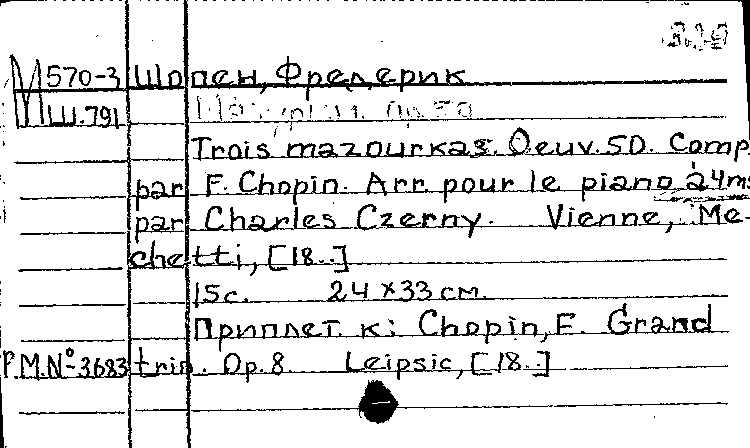 М 570-3 Шопен, Фредерик
Ш.791 Мазурки. Op. 50
Trois mazourkas. Oeuv. 50. Comp.
par F. Chopin. Arr. pour le piano à 4ms
par Charles Czerny. Vienne, Me-
chetti, [18..]
15 с. 24 x 33 см.
Приплет. к: Chopin, F. Grand
P.M.№-3683 trio. Op. 8 Leipsic, [18..]